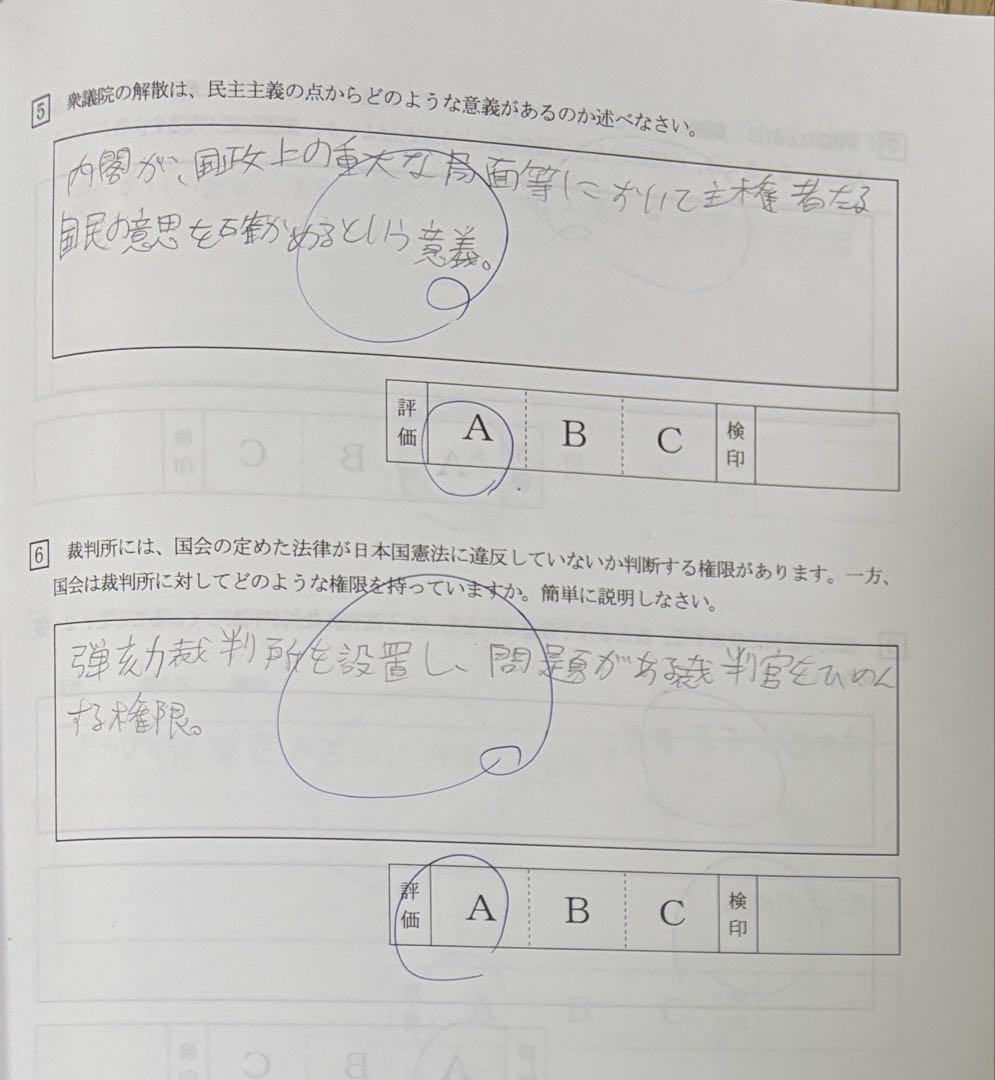 5 衆議院の解散は、民主主義の点からどのような意義があるのか述べなさい。
内閣が、国政上の重大な局面等において主権者たる
国民の意思を確かめるという意義。
評価 A B C 検印
6 裁判所には、国会の定めた法律が日本国憲法に違反していないか判断する権限があります。一方、
国会は裁判所に対してどのような権限を持っていますか。簡単に説明しなさい。
弾劾裁判所を設置し、問題がある裁判官をひめん
する権限。
評価 A B C 検印